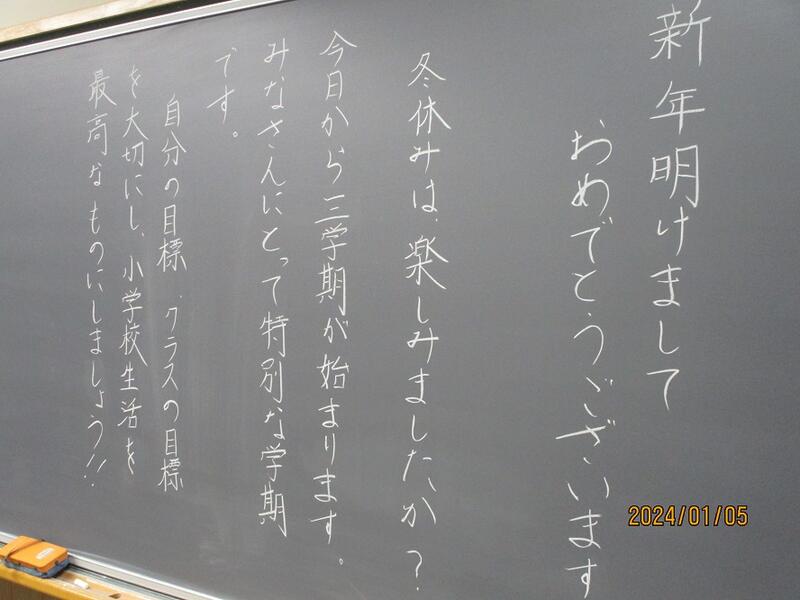 新年明けまして
おめでとうございます
冬休みは、楽しみましたか？
今日から三学期が始まります。
みなさんにとって特別な学期
です。
自分の目標、クラスの目標
を大切にし、小学校生活を
最高なものにしましょう!!
2024/01/05